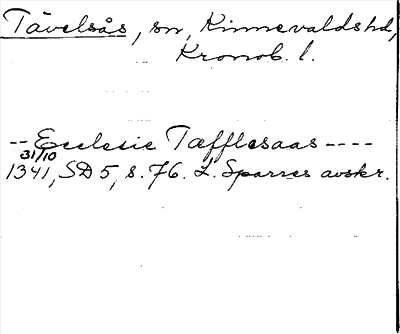 Tävelsås, sn, Kinnevalds hd,
Kronob. l.
-- Ecclesie Tæfflesaas ----
31/10
1341, SD 5, s. 76. L. Sparres avskr.